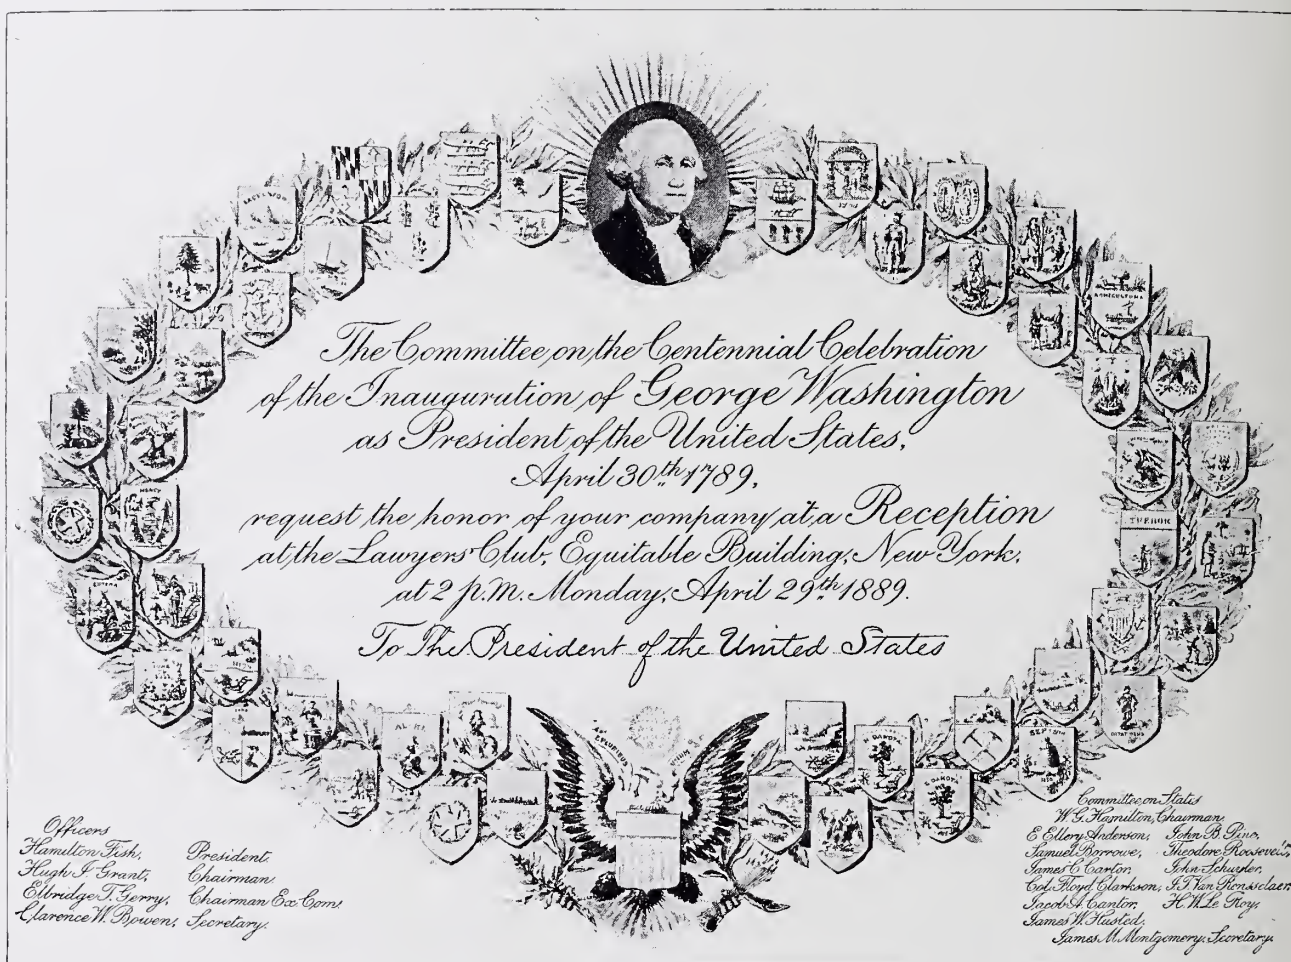 The Committee on the Centennial Celebration
of the Inauguration of George Washington
as President of the United States,
April 30th 1789,
request the honor of your company at a Reception
at the Lawyers' Club, Equitable Building, New York,
at 2 p.m. Monday, April 29th 1889.
To The President of the United States
AGRICULTURE
N. DAKOTA
S. DAKOTA
Officers
Hamilton Fish, President.
Hugh J. Grant, Chairman.
Elbridge T. Gerry, Chairman Ex. Com.
Clarence W. Bowen, Secretary.
Committee on States
W. G. Hamilton, Chairman.
E Ellery Anderson, John B. Pine,
Samuel Borrowe, Theodore Roosevelt,
James C. Carter, John Schuyler,
Col. Floyd Clarkson, J. T. Van Rensselaer,
Jacob A. Cantor, H. W. Le Roy,
James W. Husted.
James M. Montgomery, Secretary.